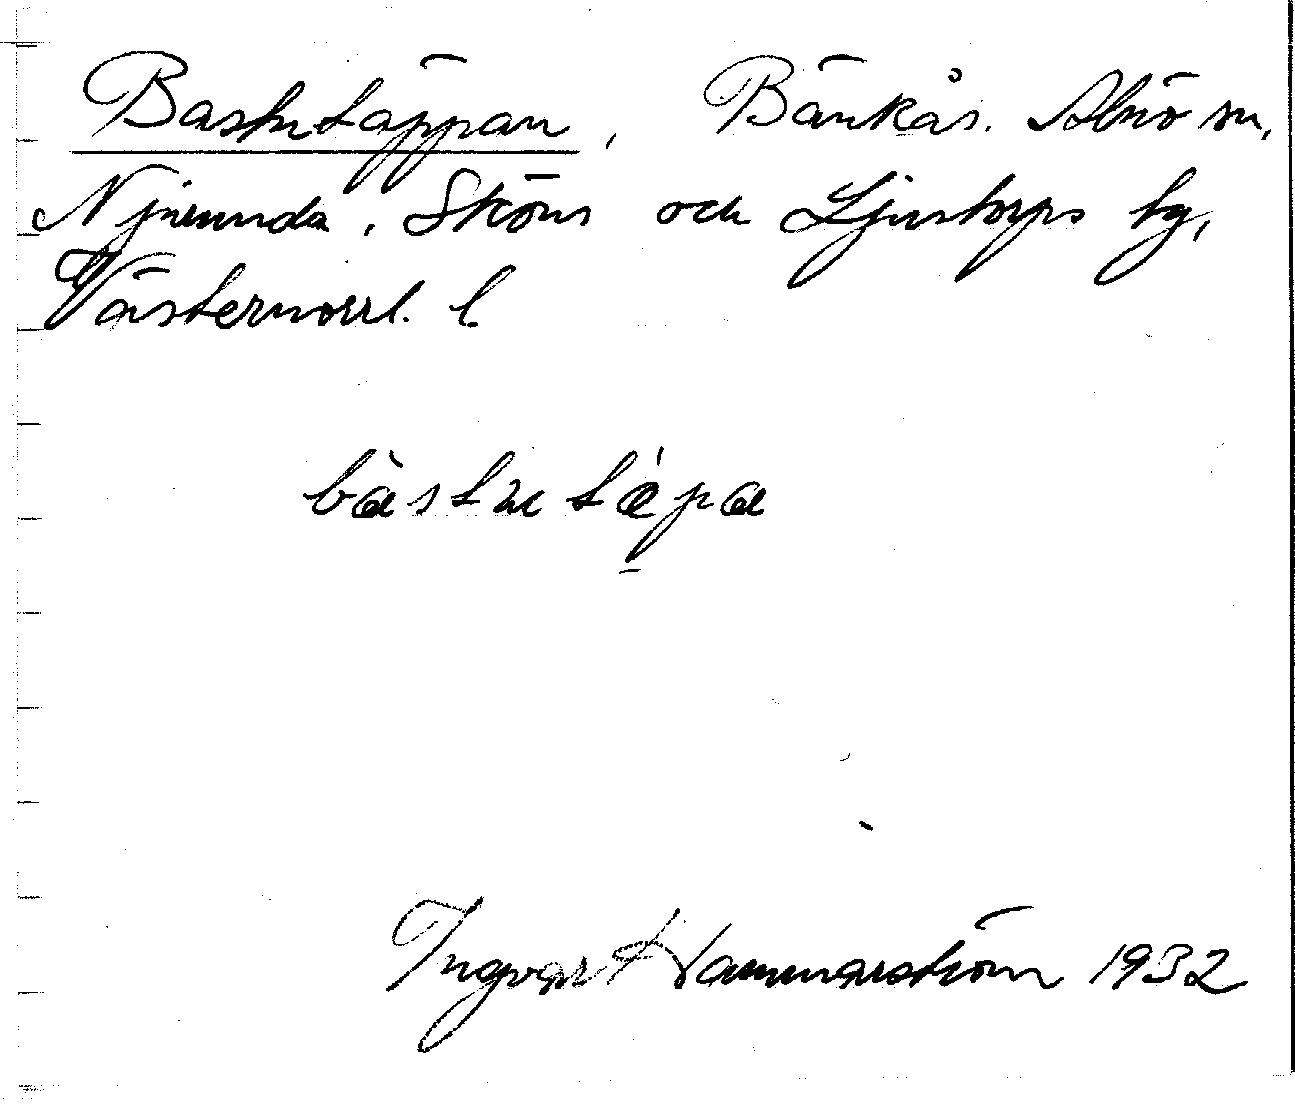 Bastutäppan, Bänkås. Alnö sn,
Njurunda, Sköns och Ljustorps tg,
Västernorrl. l.
bàstutȧpa
Ingvar Hammarström 1932